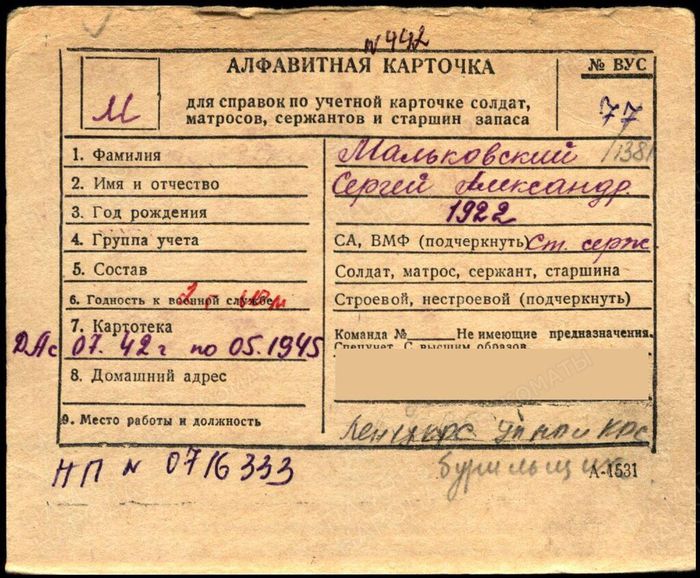 N 442
АЛФАВИТНАЯ КАРТОЧКА
№ ВУС
М
для справок по учетной карточке солдат,
матросов, сержантов и старшин запаса
77
1381
1. Фамилия
Мальковский
2. Имя и отчество
Сергей Александр.
3. Год рождения
1922
4. Группа учета
СА, ВМФ (подчеркнуть) Ст. серж.
5. Состав
Солдат, матрос, сержант, старшина
6. Годность к военной службе
Строевой, нестроевой (подчеркнуть)
7. Картотека
Команда № Не имеющие предназначения.
Спецучет. С высшим образов.
ДА с 07.42 г по 05.1945
8. Домашний адрес
9. Место работы и должность
НП N 0716333
бурильщик
А-1531